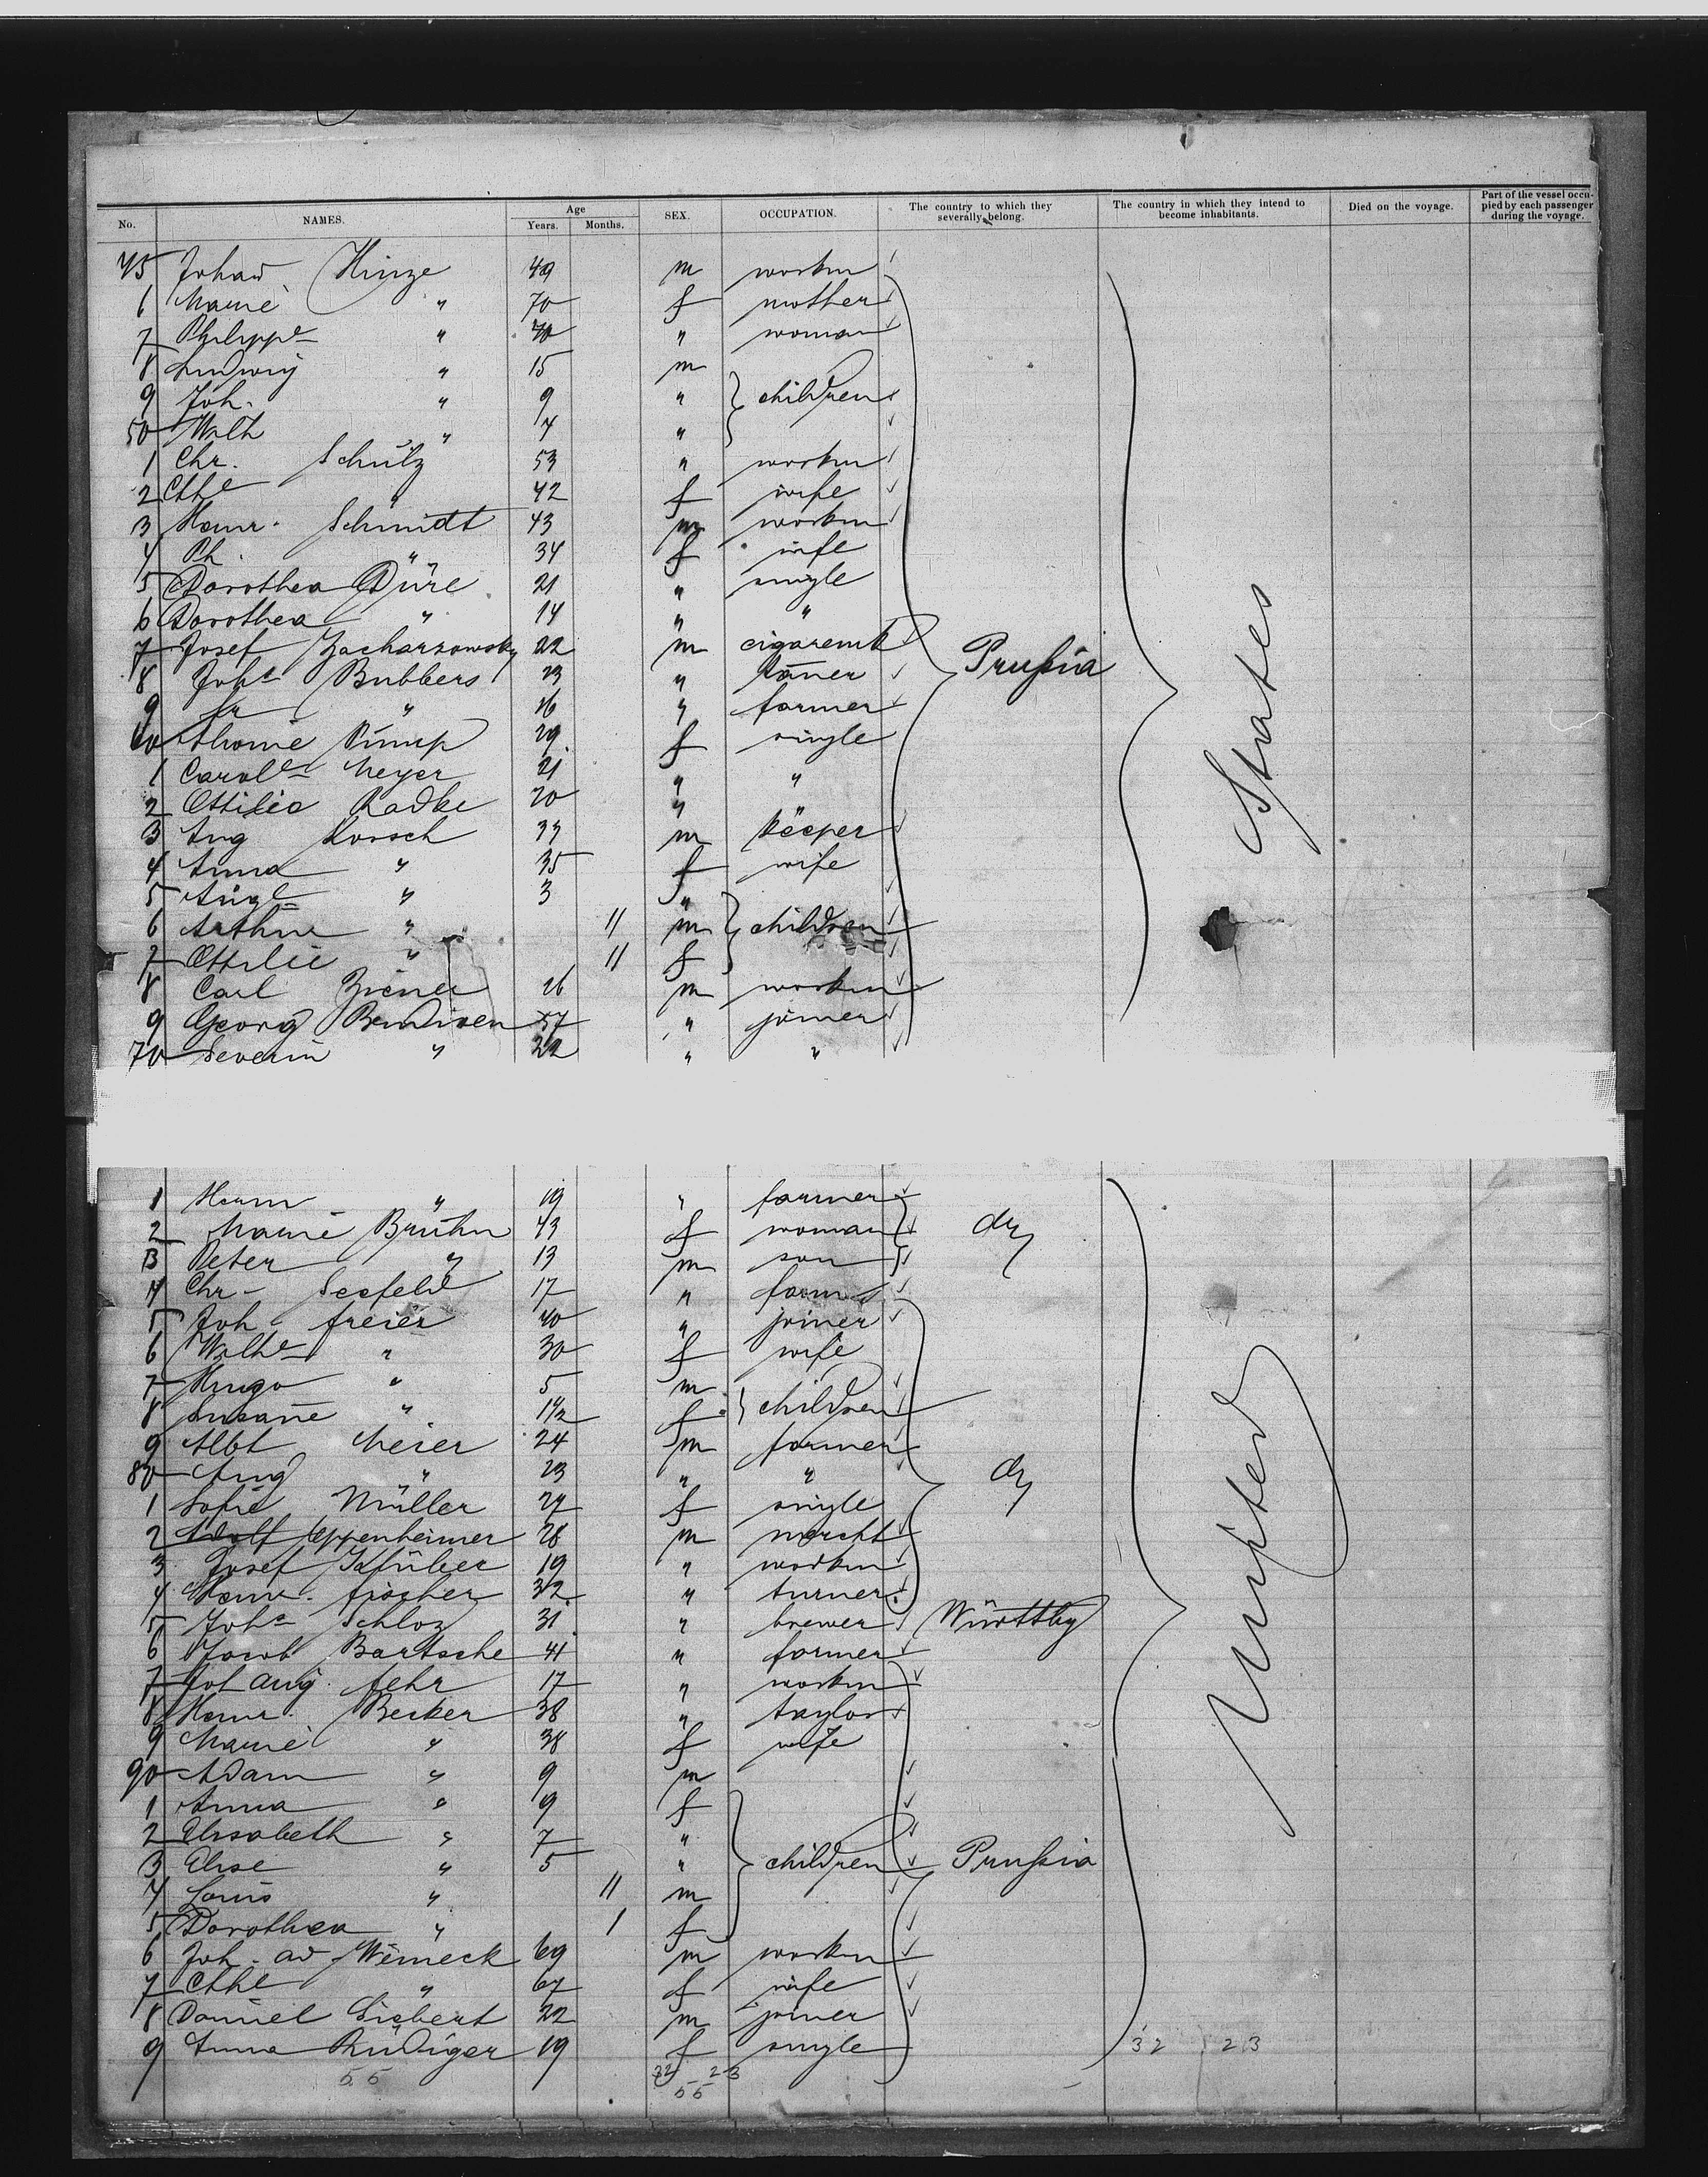 No. NAMES. Age Years. Months. SEX. OCCUPATION. The country to which they severally belong. The country in which they intend to become inhabitants. Died on the voyage. Part of the vessel occupied by each passenger during the voyage.
45 Johan Hinze 49 m workm
6 Marie " 70 f mother
7 Philippe " " woman
8 Ludwig " 15 m
9 Joh. " 9 " children
50 Wilh " 4 "
1 Chr. Schulz 53 " workm
2 Cthe " 42 f wife
3 Heinr. Schmidt 43 m workm
4 Ph. " 34 f wife
5 Dorothea Düre 21 " single
6 Dorothea " 14 " "
7 Josef Zacharzowsky 22 m cigaremk Prußia
8 Johs Bubbers 23 " tan̄er
9 Fr " 16 " farmer
60 29 f single
1 Carole Meyer 21 " "
2 Ottilie Radke 20 "
3 Aug Korsch 33 m
4 Anna " 35 f wife
5 Augte " 3 "
6 Arthur " 11 m children
7 Ottilie " 11 f
8 Carl 26 m workm
9 Georg Bendixen 57 " joiner
70 Severin " 22 " "
States
1 Herm " 19 " farmer
2 Marie Brühn 43 f woman do
3 Peter " 13 m son
4 Chr. Seefeld 17 " farm
5 Joh. Freier 40 " joiner
6 Wilhe " 30 f wife
7 Hugo " 5 m
8 Susan̄e " 1½ f children
9 Albt Meier 24 m farmer
80 Aug " 23 " " do
1 Sofie Müller 27 f single
2 Adolf Eppenheimer 28 m mercht
3 Josef 19 " workm
4 Heinr. Fischer 32 " turner
5 Johs Schloz 31 " brewer Württbg
6 Jacob Bartsche 41 " farmer
7 Joh Aug. Fehr 17 " workm
8 Heinr. Becker 38 " taylor
9 Marie " 38 f wife
90 Adam " 9 m
1 Anna " 9 f
2 Elisabeth " 7 "
3 Elise " 5 " children Prußia
4 Louis " 11 m
5 Dorothea " 1 f
6 Joh. Ad. Werneck 69 m workm
7 Cthe " 67 f wife
8 Daniel Siebert 22 m joiner
9 Anna Rüdiger 19 f single
United
32 23
55 32 23
55